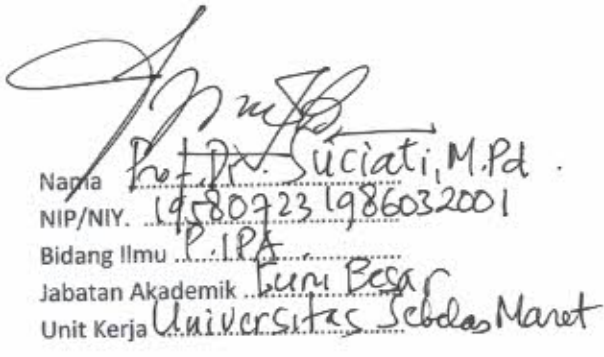 Nama Prof. Dr. Suciati, M.Pd.
NIP/NIY. 195807231986032001
Bidang Ilmu P.IPA
Jabatan Akademik Guru Besar
Unit Kerja Universitas Sebelas Maret